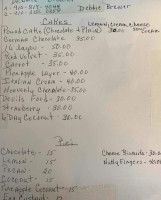 Debbie Brewer
Cakes
Lemon, cream, cheese
Pound Cakes (Chocolate + Plain) 30.00 Sour Cream
German Chocolate 35.00
14 layer - 50.00
Red Velvet - 35.00
Carrot - 35.00
Pineapple Layer - 40.00
Italian Creme - 40.00
Heavenly Chocolate - 35.00
Devils Food - 30.00
Strawberry - 30.00
4 Day Coconut - 30.00
Pies
Chocolate - 15 Cheese Biscuits - 30.00
Lemon - 15 Nutty Fingers - 40.00
Pecan - 20
Coconut - 15
Pineapple Coconut - 15
Egg Custard - 15